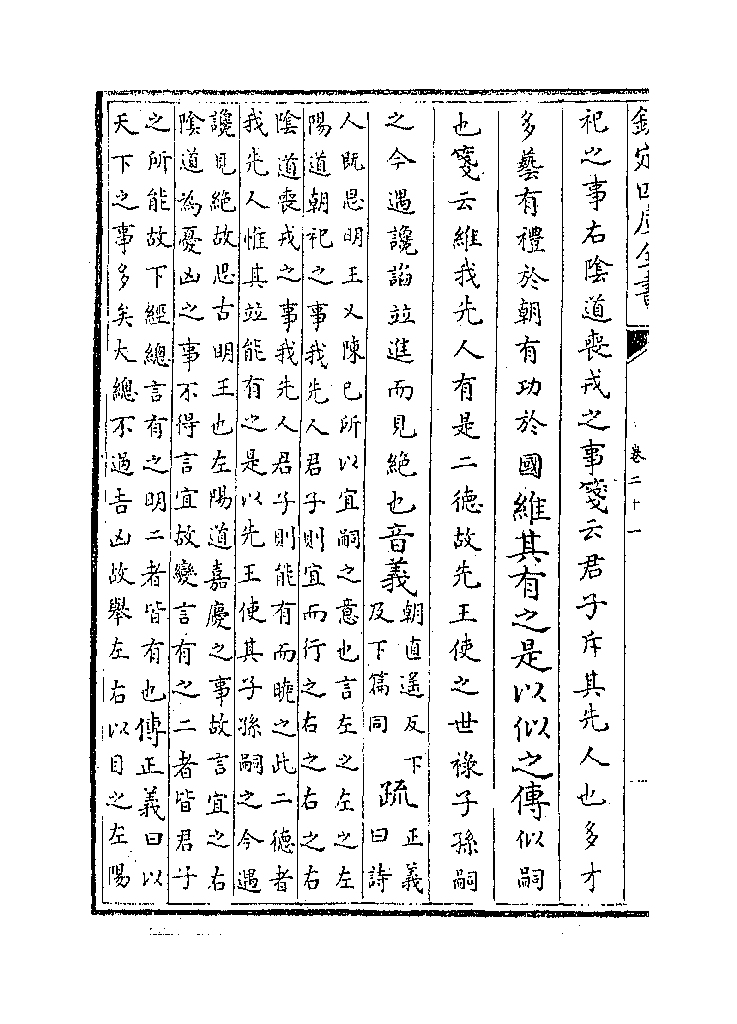 欽定四庫全書
卷二十一
祀之事右隂道喪戎之事箋云君子斥其先人也多才
多藝有禮於朝有功於國維其有之是以似之傳似嗣
也箋云維我先人有是二德故先王使之世禄子孫嗣
之今遇讒諂並進而見絶也音義朝直遥反下
及下篇同
疏正義
曰詩
人既思明王又陳己所以宜嗣之意也言左之左之左
陽道朝祀之事我先人君子則宜而行之右之右之右
隂道喪戎之事我先人君子則能有而晥之此二德者
我先人惟其並能有之是以先王使其子孫嗣之今遇
讒見絶故思古明王也左陽道嘉慶之事故言宜之右
隂道為憂凶之事不得言宜故變言有之二者皆君子
之所能故下經總言有之明二者皆有也傳正義曰以
天下之事多矣大總不過吉凶故舉左右以目之左陽